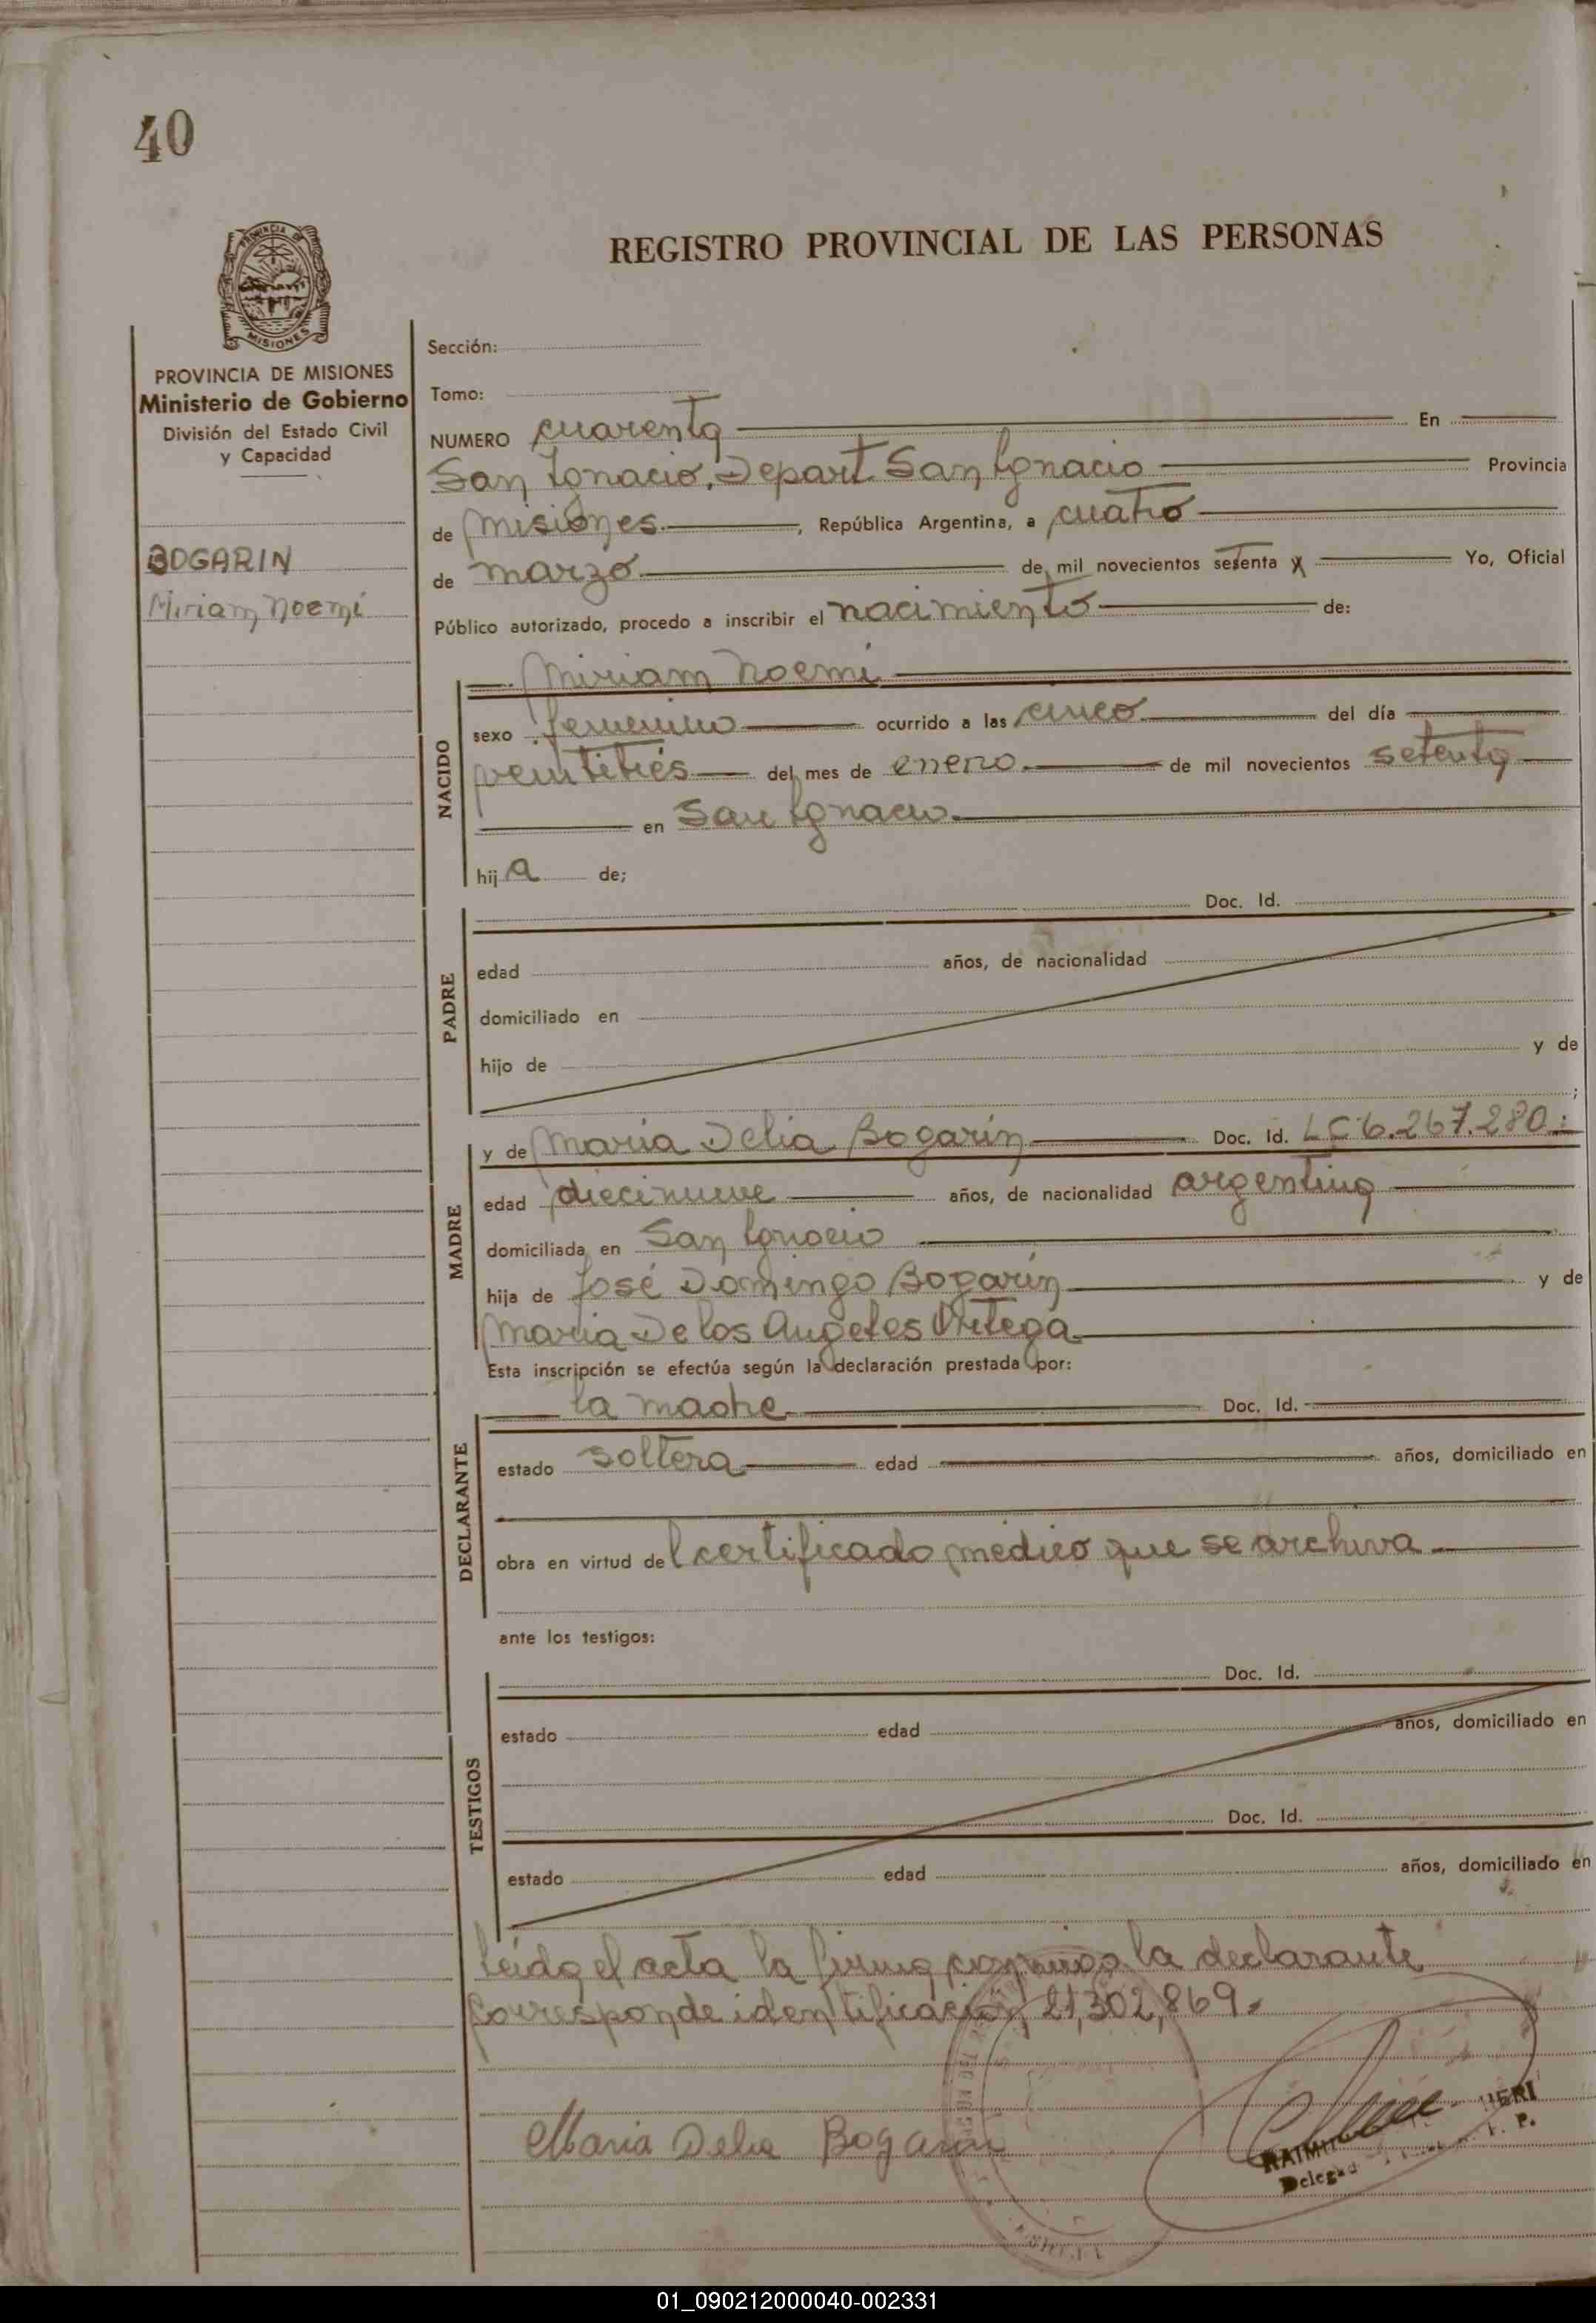 40
REGISTRO PROVINCIAL DE LAS PERSONAS
PROVINCIA DE
MISIONES
PROVINCIA DE MISIONES
Ministerio de Gobierno
División del Estado Civil
y Capacidad
BOGARIN
Miriam Noemi
Sección:
Tomo:
NUMERO cuarenta En
San Ignacio, Depart. San Ignacio Provincia
de Misiones, República Argentina, a cuatro
de marzo de mil novecientos setenta y Yo, Oficial
Público autorizado, procedo a inscribir el nacimiento de:
NACIDO
Miriam Noemi
sexo femenino ocurrido a las cinco del día
veintitrés del mes de enero de mil novecientos setenta
en San Ignacio
hija de;
PADRE
Doc. Id.
edad años, de nacionalidad
domiciliado en
hijo de y de
;
MADRE
y de Maria Delia Bogarín Doc. Id. LC 6.267.280
edad diecinueve años, de nacionalidad argentina
domiciliada en San Ignacio
hija de José Domingo Bogarín y de
Maria De los Angeles Ortega
Esta inscripción se efectúa según la declaración prestada por:
DECLARANTE
la madre Doc. Id.
estado soltera edad años, domiciliado en
obra en virtud del certificado médico que se archiva
ante los testigos:
TESTIGOS
Doc. Id.
estado edad años, domiciliado en
Doc. Id.
estado edad años, domiciliado en
Leída el acta la firma conmigo la declarante
Corresponde identificación 21,302,869.
Maria Delia Bogarin
01_090212000040-002331